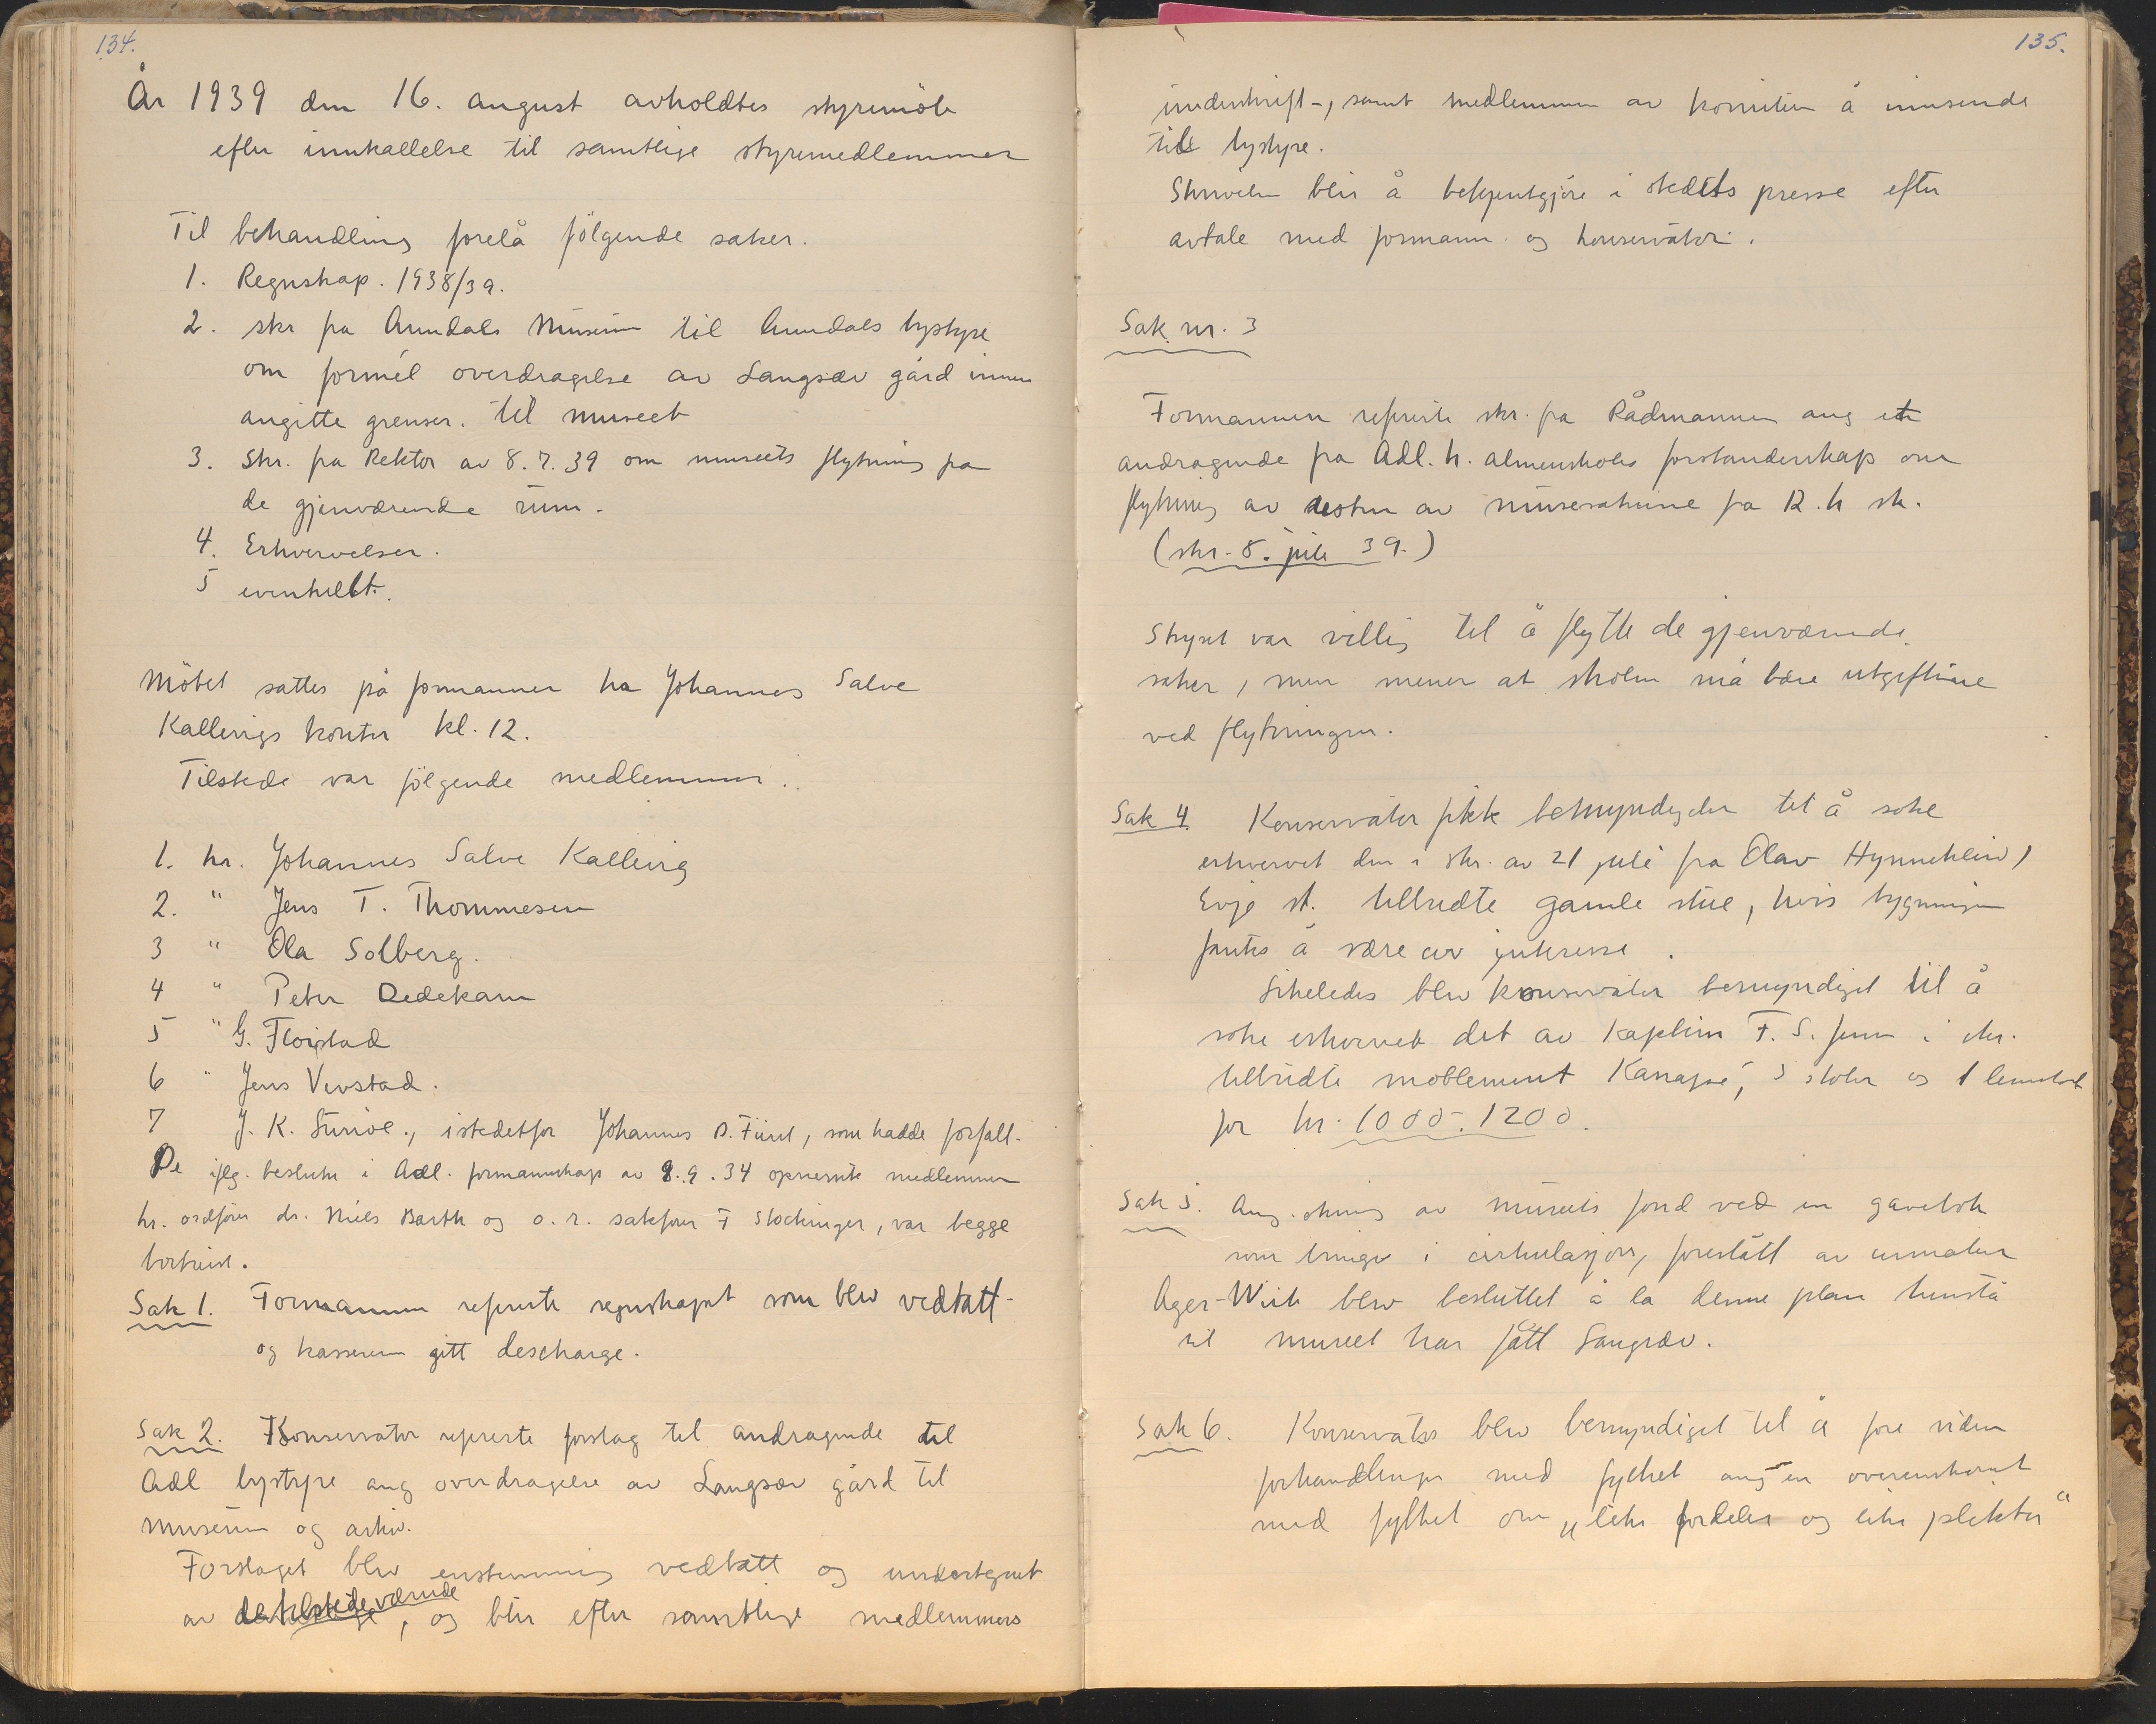 134.
År 1939 den 16. august avholdtes styremöte
efter innkallelse til samtlige styremedlemmer
Til behandling forelå fölgende saker.
1. Regnskap. 1938/39.
2. skr fra Arendals Museum til Arendals bystyre
om formél overdragelse av Langsæv gård innen
angitte grenser. til museet
3. Skr. fra Rektor av 8.7.39 om museets flytning fra
de gjenværende rum.
4. Erhvervelser.
5 eventuelt.
Mötet sattes på formannen hr Johannes Salve
Kallevigs kontor kl. 12.
Tilstede var fölgende medlemmer.
1. hr. Johannes Salve Kallevig
2. " Jens T. Thommesen
3 " Ola Solberg.
4 " Peter Dedekam
5 " G. Flöistad
6 " Jens Vevstad.
7 J. K. , istedetfor Johannes D. Fürst, som hadde forfall.
De iflg. beslutn i Adl. formannskap av 8.9.34 opnevnte medlemmer
hr. ordförer dr. Niels Barth og o.r. sakförer F Stockinger, var begge
bortreist.
Sak 1. Formannen refererte regnskapet som blev vedtatt
og kasseren gitt descharge.
Sak 2. Konservator refererte forslag til andragende til
Adl bystyre ang overdragelse av Langsæv gård til
museum og arkiv.
Forslaget blev enstemmig vedtatt og undertegnet
av de tilstedeværende, og blir efter samtlige medlemmers
135.
underskrift-, samt medlemmer av komiteen å innsende
till bystyre.
Skrivelsen blir å bekjentgjöre i stedets presse efter
avtale med formann og konservator.
Sak nr. 3
Formannen refererte skr. fra Rådmannen ang et
andragende fra Adl. h. almenskoles forstanderskap om
flytning av resten av museumsakene fra R. h sk.
(skr. 8. juli 39.)
Styret var villig til å flytte de gjenværende
saker, men mener at skolen må bære utgiftene
ved flytningen.
Sak 4. Konservator fikk bemyndigelse til å söke
erhvervet den i skr. av 21 juli fra Olav Hynnekleiv,
Evje st. tilbudte gamle stue, hvis bygningen
fantes å være av interesse.
Likeledes blev konservator bemyndiget til å
söke erhvervet det av kaptein F. S. i skr.
tilbudte möblement Kanapé, 5 stoler og 1 lenestol
for kr. 1000-1200.
Sak 5. Ang. ökning av museets fond ved en gavebok
som bringes i cirkulasjon, foreslått av
Ager-Wick blev besluttet å la denne plan henstå
til museet har fått Langsæv.
Sak 6. Konservator blev bemyndiget til å före videre
forhandlinger med fylket ang en overenskomst
med fylket om „like fordeler og like plikter“